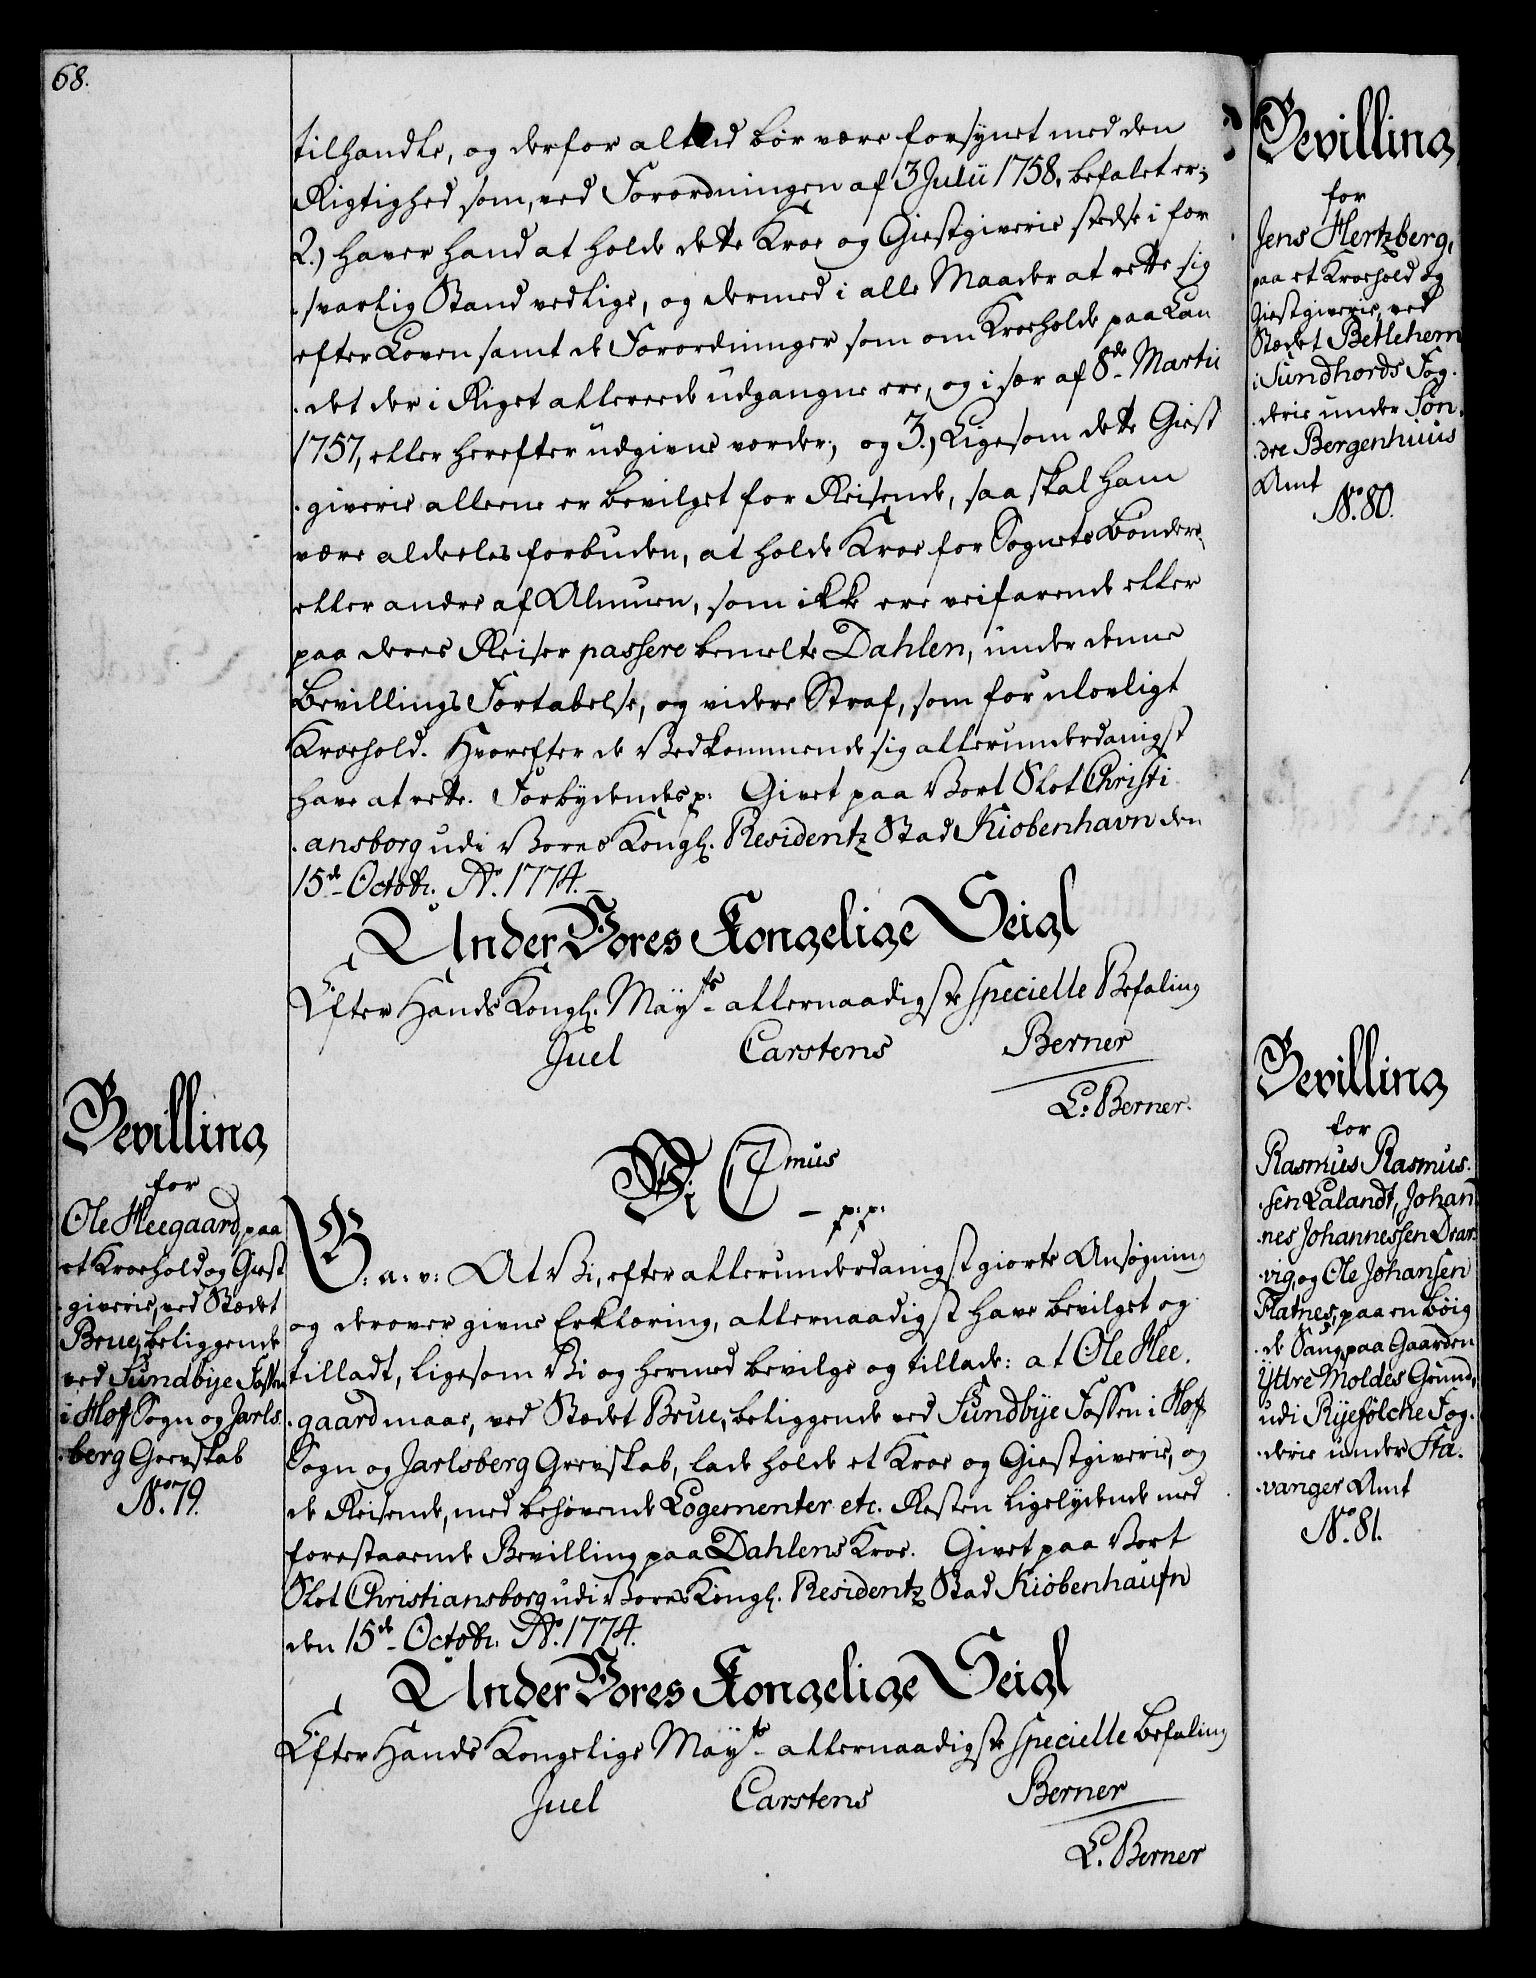 68.
tilhandle, og derfor altid bør være forsynet med den
Rigtighed som, ved Forordningen af 3 Julii 1758, befalet er;
2.) haver hand at holde dette Kroe og Giestgiverie stedse i for
-svarlig Stand vedlige, og dermed i alle Maader at rette sig
efter Loven samt de Forordninger som om Kroeholde paa Lan
-det der i Riget allereede udgangne ere, og i sær af 8de Martii
1757, eller herefter udgivne vorder; og 3.) Ligesom dette Giest
-giverie alleene er bevilget for Reisende, saa skal ham
være aldeeles forbuden, at holde Kroe for Sognets Bønder,
eller andre af Almuen, som ikke ere veifarende eller
paa deres Reiser passere bemelte Dahlen, under denne
Bevillings Fortabelse, og videre Straf, som for ulovligt
Kroehold. Hvorefter de Vedkommende sig allerunderdanigst
have at rette. Forbydendes p: Givet paa Vort Slot Christi
-ansborg udi Vores Kongl. Residentz Stad Kiobenhavn den
15de Octobr. Ao. 1774.
Under Vores Kongelige Seigl
Efter Hands Kongl. Mayts allernaadigste specielle Befaling
Juel Carstens Berner
L. Berner.
Bevilling
for
Ole Heegaard, paa
et Kroehold og Giest
-giverie, ved Stædet
Brue, beliggende
ved Sundbye Fossen
i Hoff Sogn og Jarls
-berg Grevskab
No. 79.
Wi C7mus
– p: p:
G: a: v: At Vi, efter allerunderdanigst giorte Ansøgning
og derover givne Erklæring, allernaadigst have bevilget og
tilladt, ligesom Vi og hermed bevilge og tillade: at Ole Hee-
-gaard maae, ved Stædet Brue, beliggende ved Sundbye Fossen i Hoff
Sogn og Jarlsberg Grevskab, lade holde et Kroe og Giestgiverie, og
de Reisende, med behøvende Logementer etc. Resten ligelydende med
forestaaende Bevilling paa Dahlens Kroe. Givet paa Vort
Slot Christiansborg udi Vores Kongl. Residentz Stad Kiøbenhaufn
den 15de Octobr. Ao. 1774.
Under Vores Kongelige Seigl
Efter Hands Kongelige Mayts allernaadigste specielle befaling
Juel Carstens Berner
L. Berner
Bevilling
for
Jens Hertzberg,
paa et Kroehold og
Giestgiverie, ved
Stædet Betlehem
i Sundhords Fog-
-derie under Søn-
-dre Bergenhuus
Amt
No. 80.
Bevilling
for
Rasmus Rasmus-
-sen Lalandt, Johan
-nes Johannessen Drar
-vig, og Ole Johansen
Flatnes, paa en bøig
-de Saug, paa Gaarden
Yttre Moldes Grund,
udi Ryefølche Fog-
-derie under Sta-
-vanger Amt
No. 81.